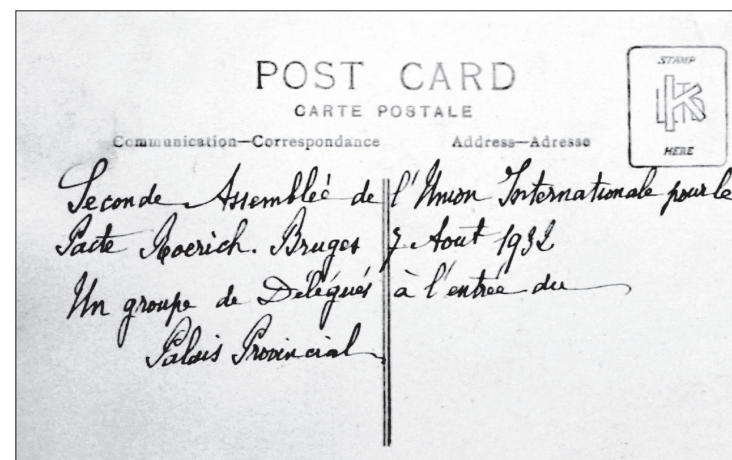 POST CARD
CARTE POSTALE
Communication—Correspondance Address—Adresse
STAMP
HERE
Seconde Assembleé de l'Union Internationale pour le
Pacte Roerich. Bruges 7 Aout 1932
Un groupe de Délégués à l'entrée du
Palais Provincial